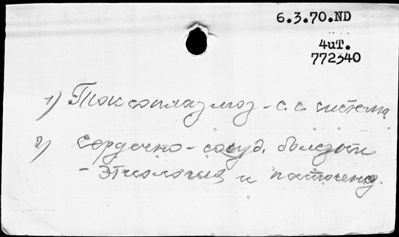 6.3.70.ND
4иT.
772340
1) Токсоплазмоз - с.с. система
2) Сердечно-сосуд. болезни
- этиология и патогенез.